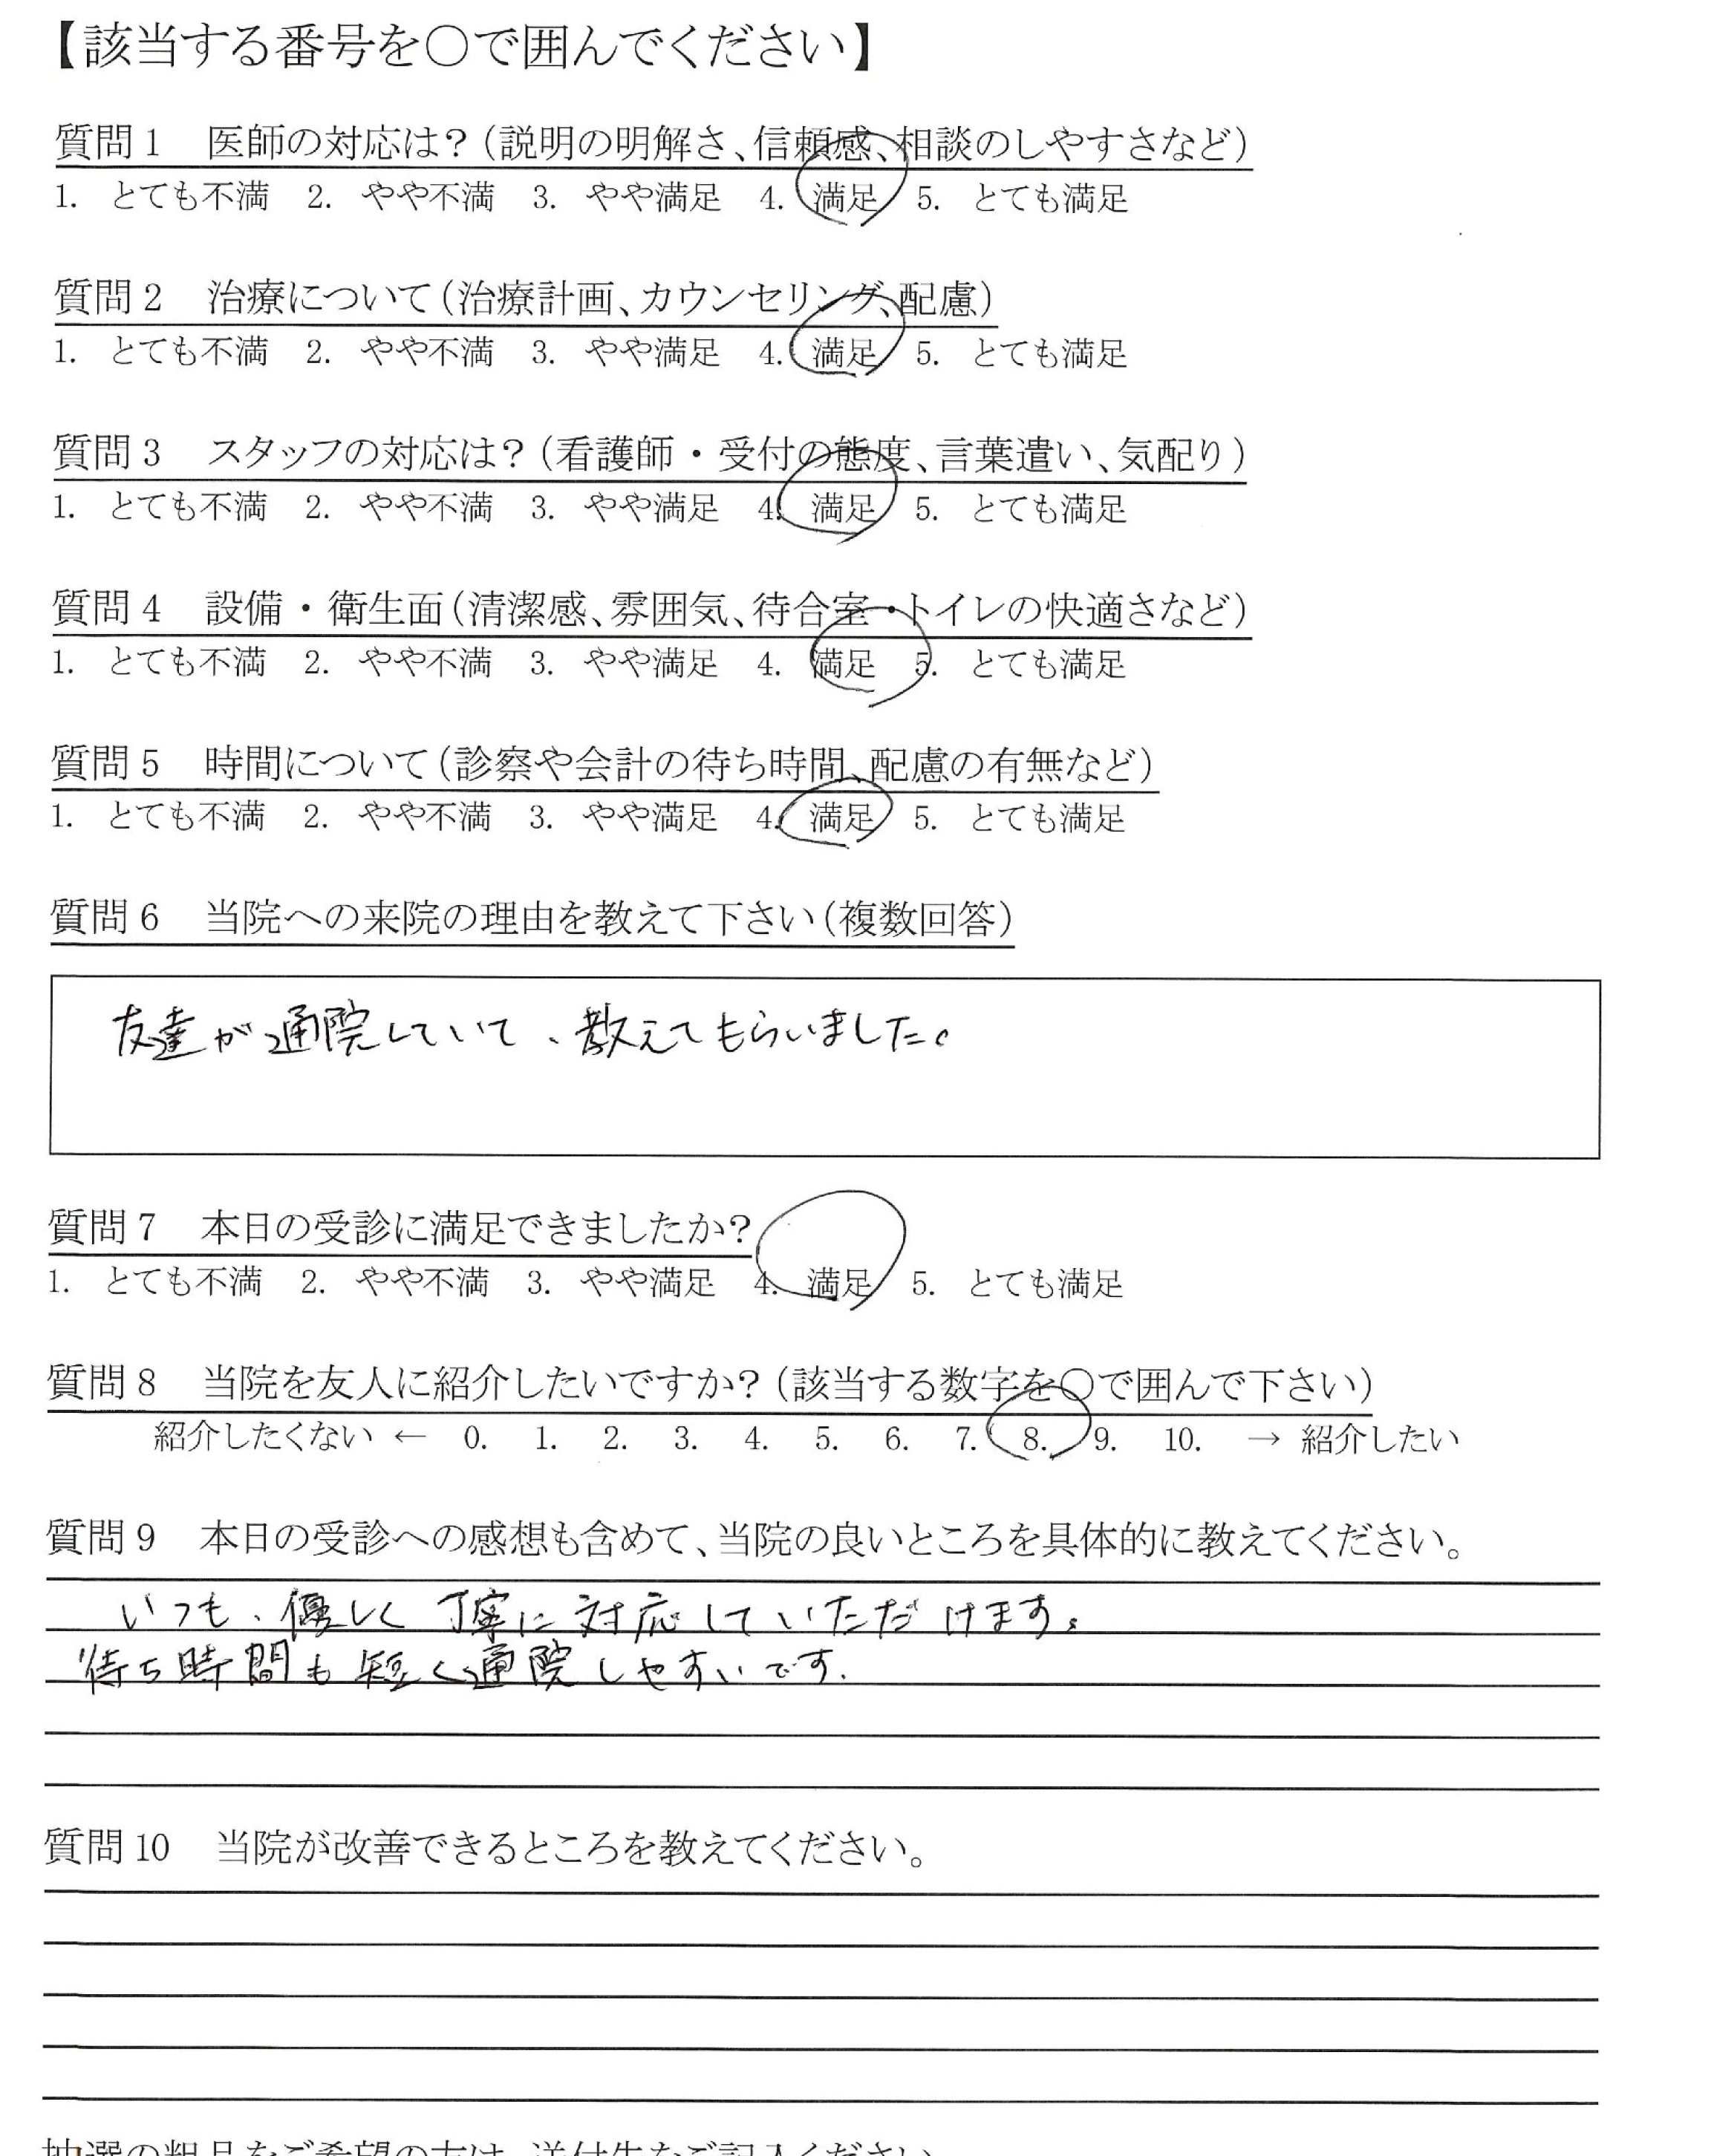 【該当する番号を○で囲んでください】
質問1　医師の対応は？（説明の明解さ、信頼感、相談のしやすさなど）
1.　とても不満　2.　やや不満　3.　やや満足　4.　満足　5.　とても満足
質問2　治療について（治療計画、カウンセリング、配慮）
1.　とても不満　2.　やや不満　3.　やや満足　4.　満足　5.　とても満足
質問3　スタッフの対応は？（看護師・受付の態度、言葉遣い、気配り）
1.　とても不満　2.　やや不満　3.　やや満足　4.　満足　5.　とても満足
質問4　設備・衛生面（清潔感、雰囲気、待合室・トイレの快適さなど）
1.　とても不満　2.　やや不満　3.　やや満足　4.　満足　5.　とても満足
質問5　時間について（診察や会計の待ち時間、配慮の有無など）
1.　とても不満　2.　やや不満　3.　やや満足　4.　満足　5.　とても満足
質問6　当院への来院の理由を教えて下さい（複数回答）
友達が通院していて、教えてもらいました。
質問7　本日の受診に満足できましたか？
1.　とても不満　2.　やや不満　3.　やや満足　4.　満足　5.　とても満足
質問8　当院を友人に紹介したいですか？（該当する数字を○で囲んで下さい）
紹介したくない ← 0.　1.　2.　3.　4.　5.　6.　7.　8.　9.　10.　→ 紹介したい
質問9　本日の受診への感想も含めて、当院の良いところを具体的に教えてください。
いつも、優しく丁寧に対応していただけます。
待ち時間も短く通院しやすいです.
質問10　当院が改善できるところを教えてください。
抽選の粗品をご希望の方は、送付先をご記入ください